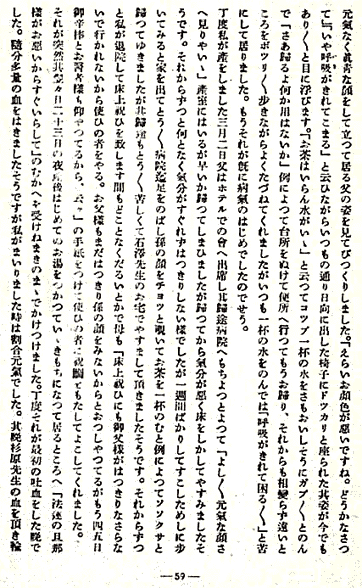 元氣なく眞靑な顏をして立つて居る父の姿を見てびつくりしました。『えらいお顏色が惡いですな。どうかなさつ
て』『いや呼吸がきれてこまる』と云ひながらいつもの通り日向に出した椅子にドツカリと座られた其姿が今でも
あり〳〵と目に浮びます。『お茶はいらん水がいゝ』と云つてコツプ一杯の水をさもおいしそうにガブ〳〵とのん
で『さあ歸るよ何か用はないか』例によつて台所をぬけて便所へ行つてもうお歸り、それからも相變らず遠いと
ころをボツリ〳〵歩きながらよくたづねてくれましたがいつも一杯の水をのんでは『呼吸がきれて困る〳〵』と苦
にして居りました。もうそれが旣に病氣のはじめでしたのでせう。
丁度私が產をしました三月二日父はホテルでの會へ出席し其歸途病院へもちよつとよつて『よし〳〵元氣な顏さ
へ見りやいゝ』產室にはいるが早いか歸つてしまひましたが歸つてから氣分が惡く床をしかしてやすみましたそ
うです。それからずつと何となく氣分がすぐれずはつきりしない樣でしたが一週間ばかりしてすこしためしに步
いてみると家を出てとう〳〵病院迄足をのばし孫の顏をチヨツと覗いてお茶を一杯のむと例によつてソソクサと
歸つてゆきましたが其歸途もとう〳〵苦しくして石澤先生のお宅でやすまして頂きましたそうです。それからずつ
と私が退院して床上祝ひを致します間もどことなくだるいとかで母も『床上祝ひにも御父樣がはつきりなさらな
いで行かれないから使ひの者をやる。お父樣もまだはつきり孫の顏をみないからとおつしやつてるがもう四五日
御辛抱とお醫者樣も仰やつてるから、云々』の手紙をつけて使ひの者に祝鯛をもたしてよこしてくれました。
それが突然其翌々日二十三日の夜夜後はじめてのお湯をつかつていゝきもちになつて居るところへ『法蓮の旦那
樣がお惡いからすぐいらして』のむかへを受けねまきのまゝでかけつけました。丁度それが最初の吐血をした晩で
した。隨分多量の血をはきましたそうですが私がまいりました時は割合元氣でした。其晩杉原先生の血を頂き輸
—59—